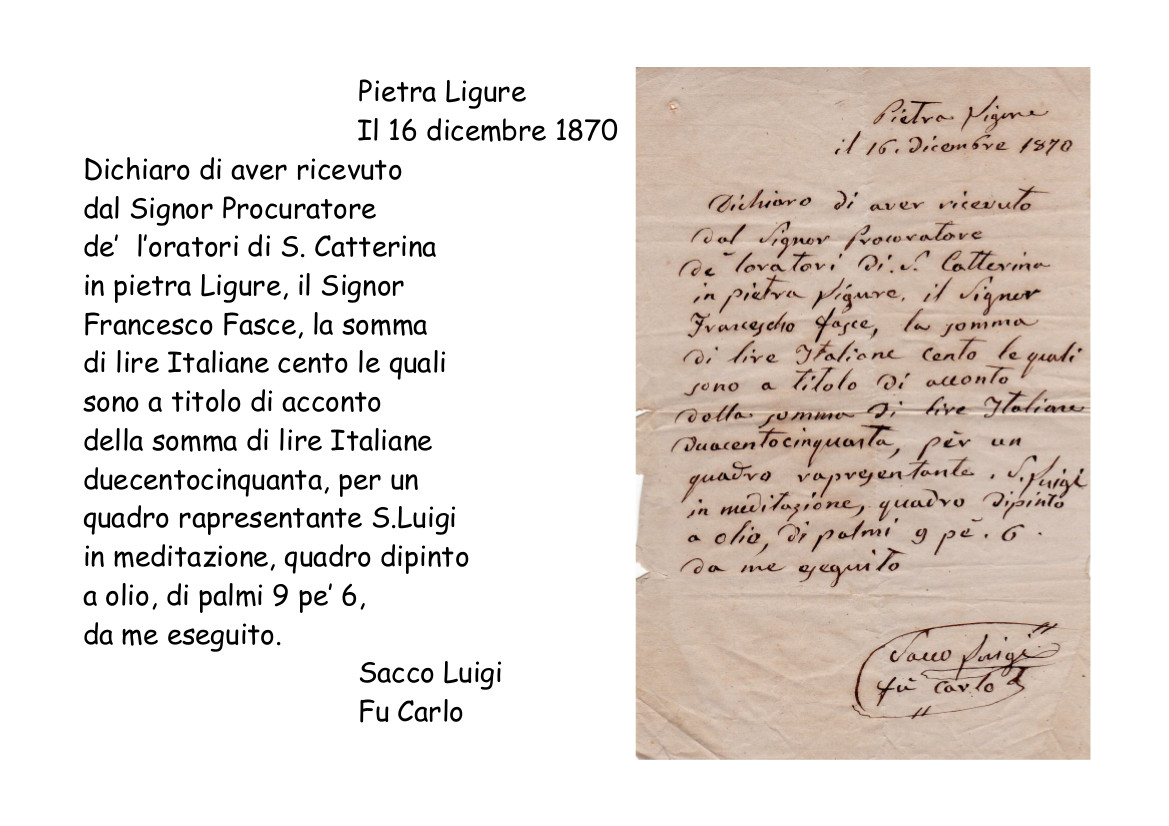 Pietra Ligure
Il 16 dicembre 1870
Dichiaro di aver ricevuto
dal Signor Procuratore
de’ l’oratori di S. Catterina
in pietra Ligure, il Signor
Francesco Fasce, la somma
di lire Italiane cento le quali
sono a titolo di acconto
della somma di lire Italiane
duecentocinquanta, per un
quadro rapresentante S.Luigi
in meditazione, quadro dipinto
a olio, di palmi 9 pe’ 6,
da me eseguito.
Sacco Luigi
Fu Carlo
Pietra Ligure
il 16. dicembre 1870
Dichiaro di aver ricevuto
dal Signor Procuratore
de' loratori di. S. Catterina
in pietra Ligure. il Signor
Francescho fasce, la somma
di lire Italiane cento le quali
sono a titolo di acconto
della somma di lire Italiane
Duacentocinquanta, pèr un
quadro rapresentante. S. Luigi
in meditazione, quadro dipinto
a olio, di palmi 9 pè. 6.
da me eseguito
Sacco Luigi
fù Carlo